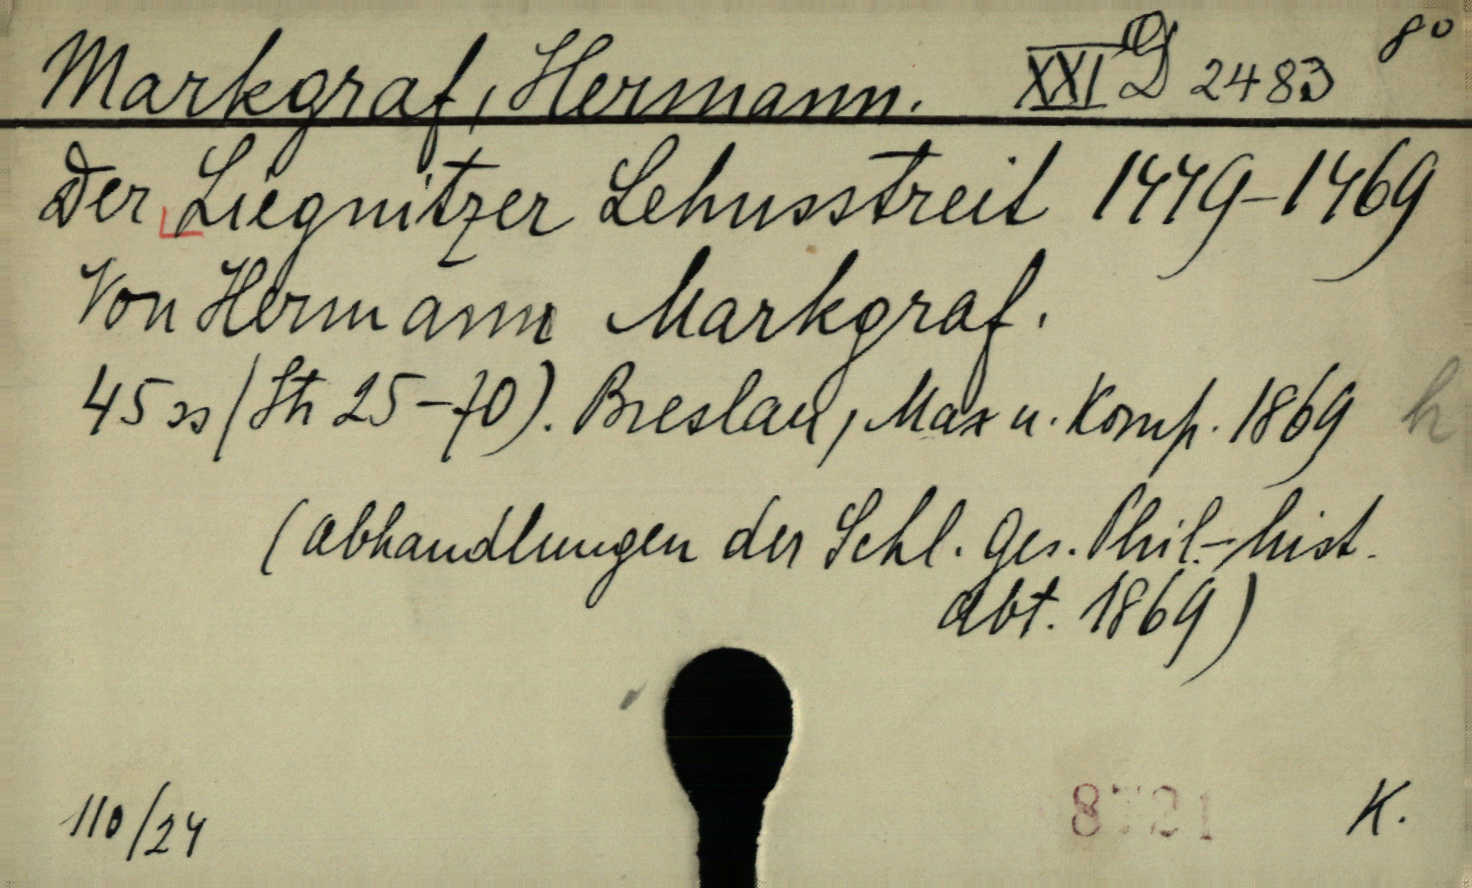 Markgraf, Hermann. XXI D 2483 8°
Der Liegnitzer Lehnsstreit 1449-1469
Von Hermann Markgraf.
45 ss (St 25-70). Breslau, Max u. Komp. 1869 h
(Abhandlungen der Schl. Ges. Phil.-hist.
Abt. 1869)
110/24 8721 K.